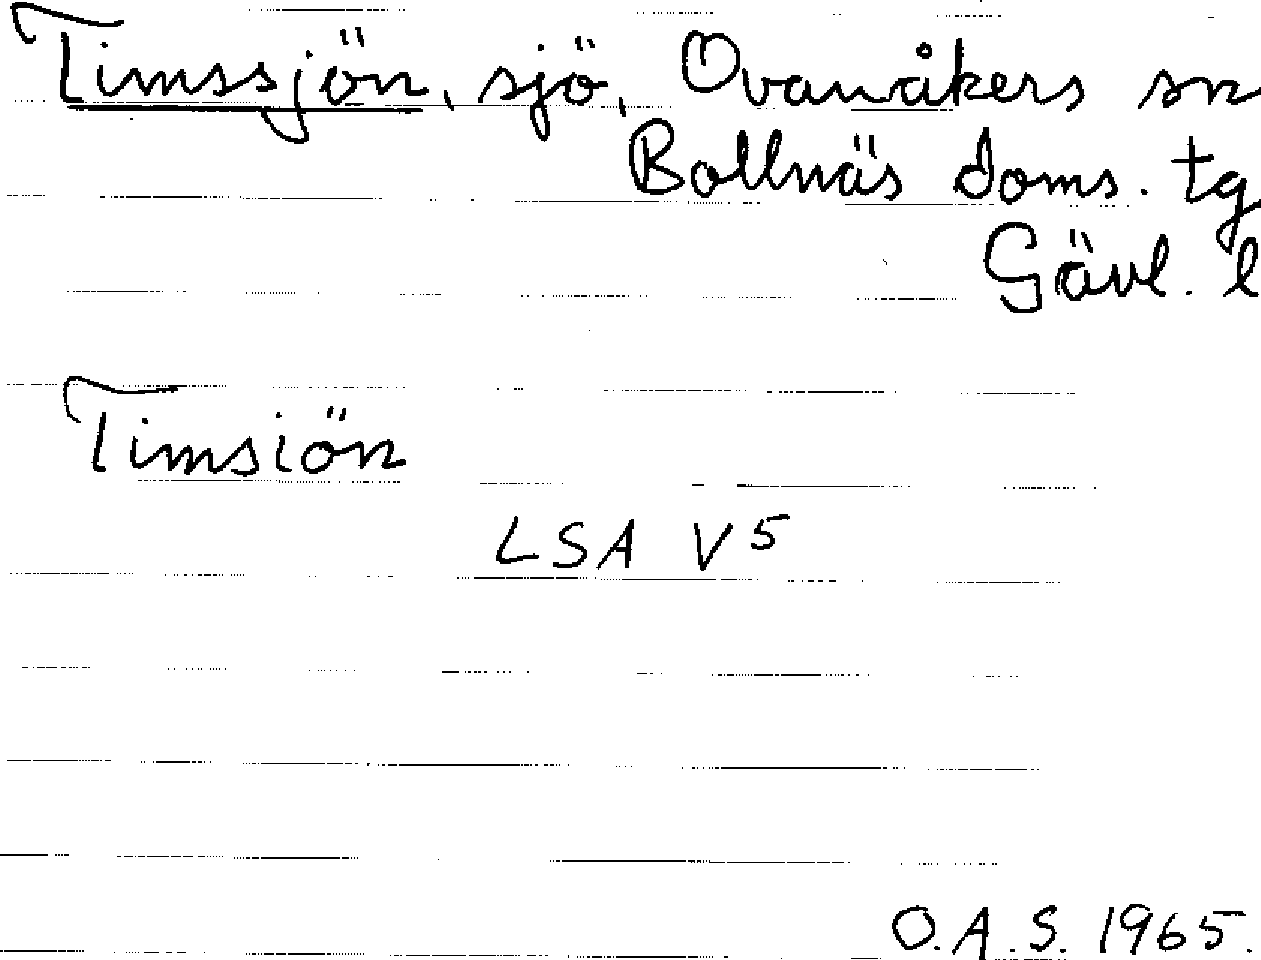 Timssjön, sjö, Ovanåkers sn
Bollnäs doms. tg
Gävl. l
Timsiön
LSA V 5
O.A.S. 1965.